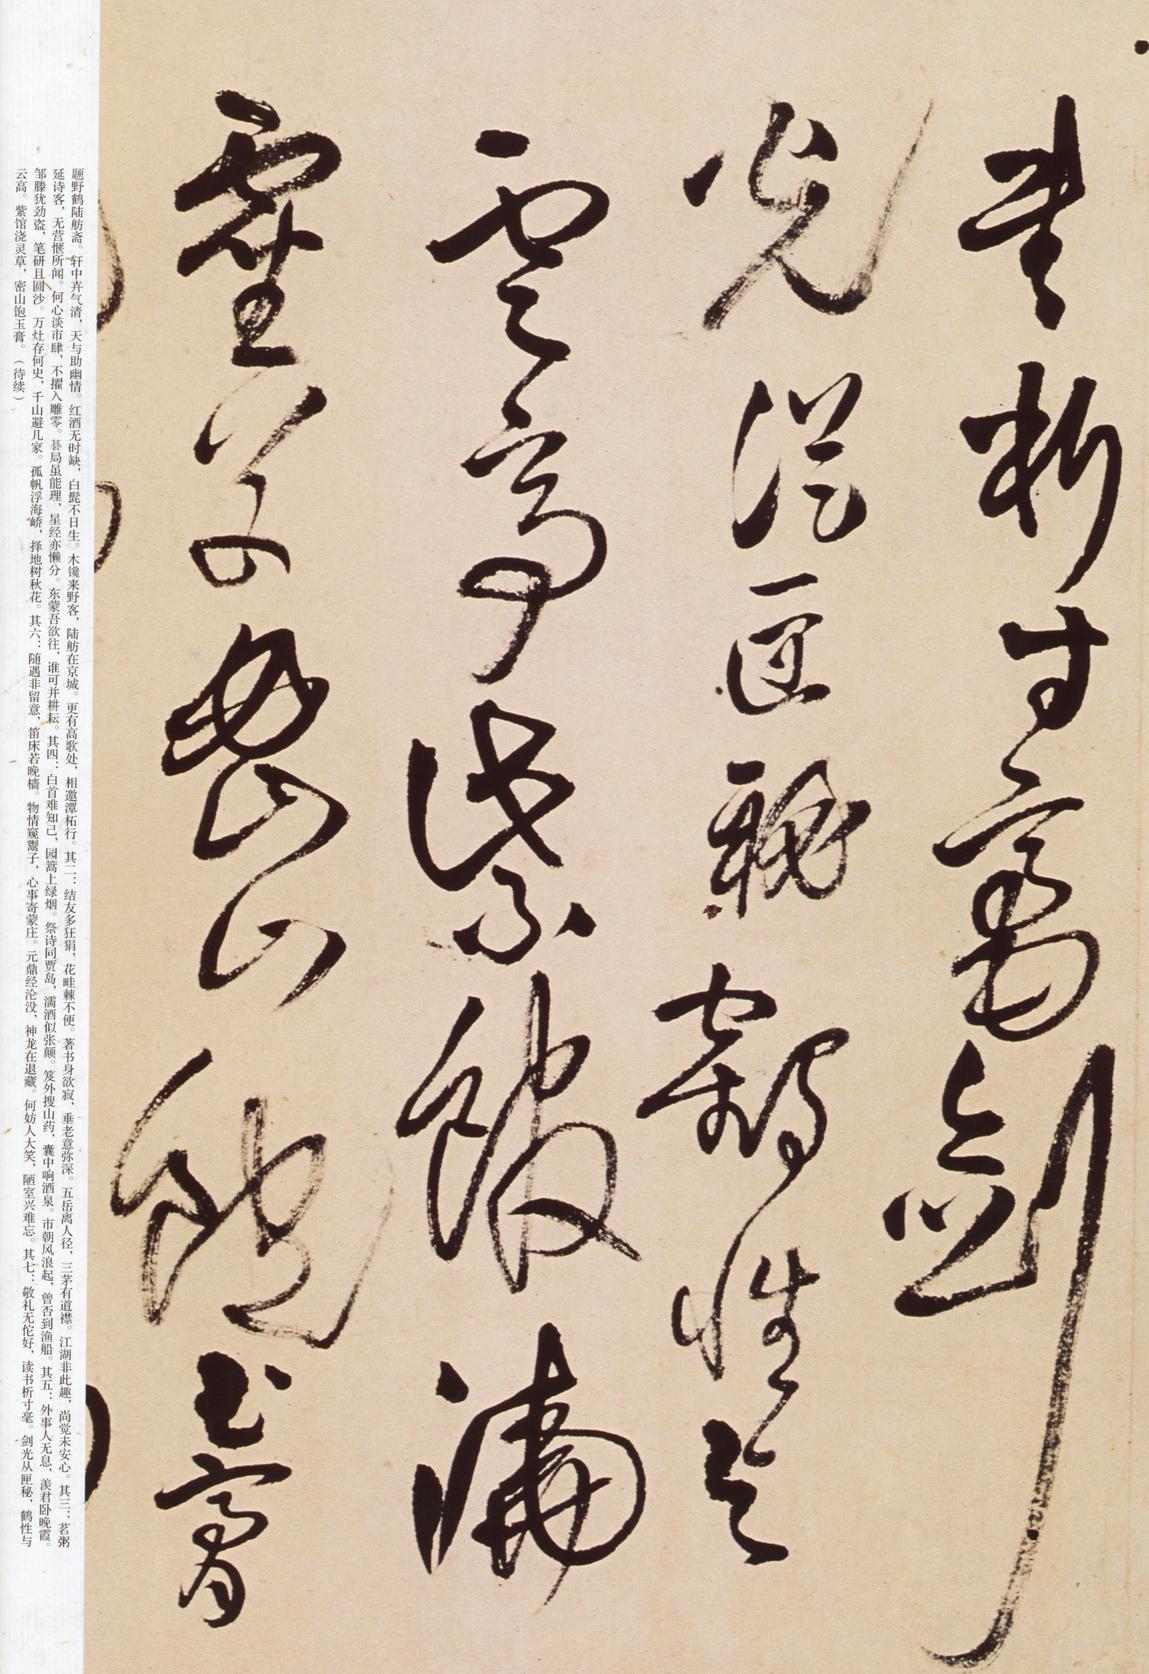 書析寸毫劍
光從匣秘鶴性與
雲高紫館澆
靈草密山飽玉膏
题野鹤陆舫斋。轩中卉气清，天与助幽情。红酒无时缺，白髭不日生。木镵来野客，陆舫在京城。更有高歌处，相邀潭柘行。其二：结友多狂狷，花畦棘不便。著书身欲寂，垂老意弥深。五岳离人径，三茅有道襟。江湖非此趣，尚觉未安心。其三：茗粥
延诗客，无营惬所闻。何心谈市肆，不擢入雕零。碁局虽能理，星经亦懒分。东蒙吾欲往，谁可并耕耘。其四：白首难知己，园蒿上绿烟。祭诗同贾岛，濡酒似张颠。笈外搜山药，囊中响酒泉。市朝风浪起，曾否到渔船。其五：外事人无息，羡君卧晚霞。
邹滕犹劲盗，笔研且圆沙。万灶存何史，千山避几家。孤帆浮海峤，择地树秋花。其六：随遇非留意，笛床若晚樯。物情窥鬻子，心事寄蒙庄。元鼎经沦没，神龙在退藏。何妨人大笑，陋室兴难忘。其七：敬礼无佗好，读书析寸毫。剑光从匣秘，鹤性与
云高。紫馆浇灵草，密山饱玉膏。（待续）